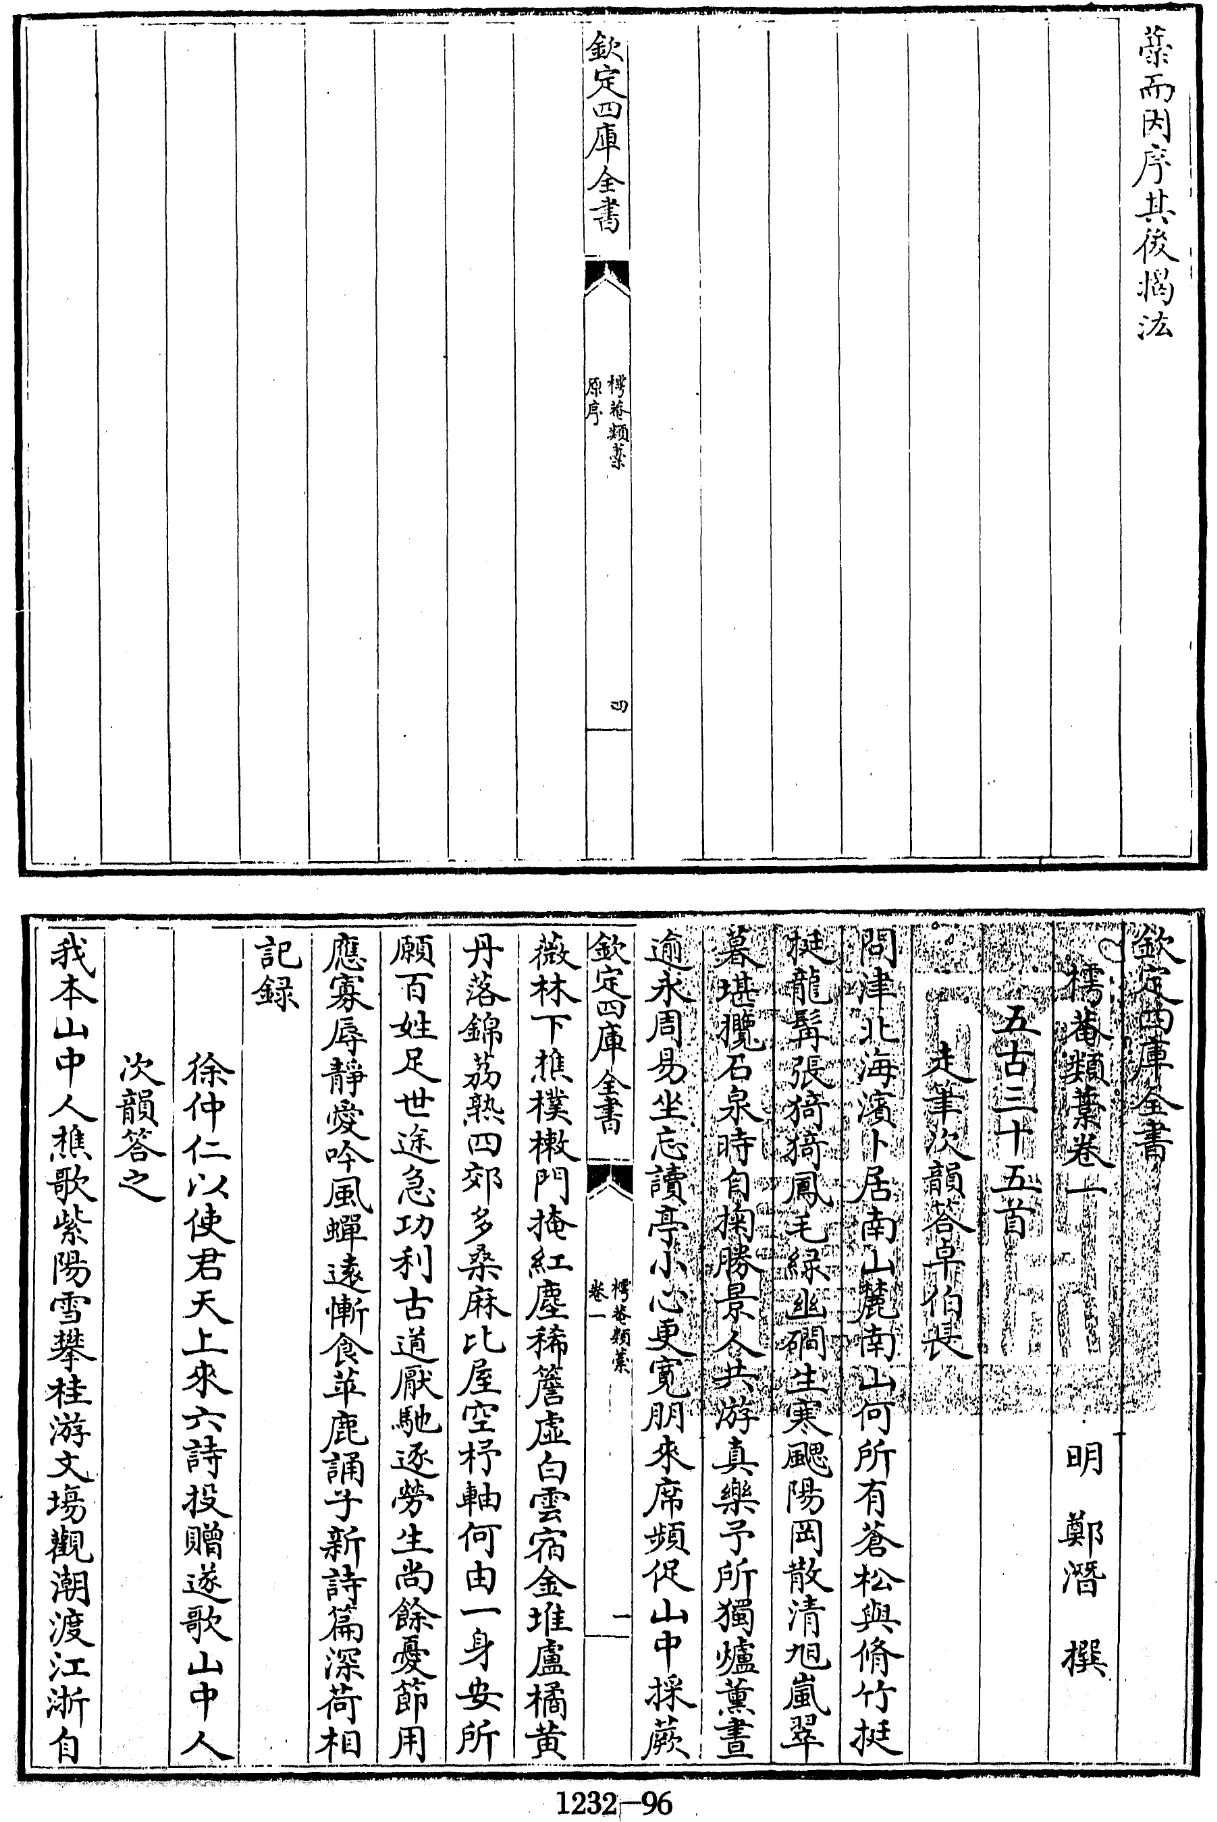 藁而因序其後揭汯
欽定四庫全書
樗菴類藁
原序
四
欽定四庫全書
樗菴類藁卷一
明 鄭潛 撰
五古三十五首
走筆次韻荅卓伯長
問津北海濱卜居南山麓南山何所有蒼松與脩竹挺
挺龍髯張猗猗鳳毛緑幽磵生寒颸陽岡散清旭嵐翠
暮堪攬石泉時自掬勝景人共游真樂予所獨爐薰晝
逾永周易坐忘讀亭小心更寛朋來席頻促山中採蕨
欽定四庫全書
樗菴類藁
卷一
一
薇林下樵樸樕門掩紅塵稀簷虚白雲宿金堆盧橘黄
丹落錦荔熟四郊多桑麻比屋空杼軸何由一身安所
願百姓足世途急功利古道厭馳逐勞生尚餘憂節用
應寡辱靜愛吟風蟬遠慚食苹鹿誦子新詩篇深荷相
記録
徐仲仁以使君天上來六詩投贈遂歌山中人
次韻答之
我本山中人樵歌紫陽雪攀桂游文塲觀潮渡江浙自
1232—96